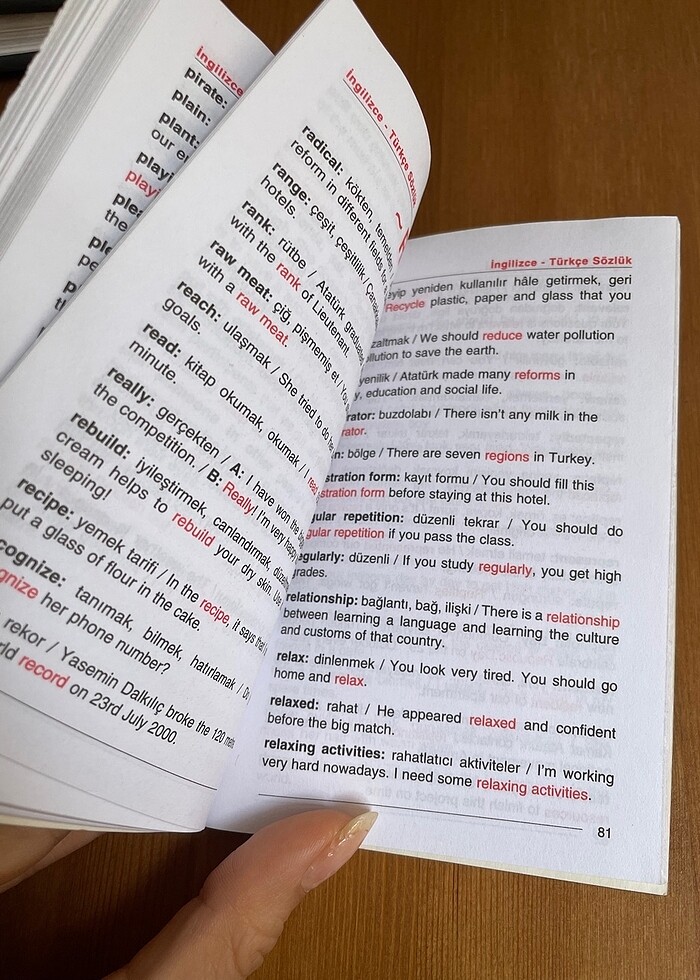 İngilizce
pirate:
plain:
plant:
our
İngilizce - Türkçe
radical: kökten, temelden
reform in different fields
range: çeşit, çeşitlilik /
hotels.
rank: rütbe / Atatürk
with the rank of Lieutenant.
raw meat: çiğ, pişmemiş et / You
with a raw meat.
reach: ulaşmak / She tried to do
goals.
read: kitap okumak, okumak / I
minute.
really: gerçekten / A: I have won the
the competition. / B: Really! I'm very happy
rebuild: iyileştirmek, canlandırmak,
cream helps to rebuild your dry skin.
sleeping!
recipe: yemek tarifi / In the recipe, it says that
put a glass of flour in the cake.
tanımak, bilmek, hatırlamak /
her phone number?
rekor / Yasemin Dalkılıç broke the 120
record on 23rd July 2000.
İngilizce - Türkçe Sözlük
yeniden kullanılır hâle getirmek, geri
Recycle plastic, paper and glass that you
/ We should reduce water pollution
to save the earth.
/ Atatürk made many reforms in
education and social life.
buzdolabı / There isn't any milk in the
bölge / There are seven regions in Turkey.
form: kayıt formu / You should fill this
form before staying at this hotel.
repetition: düzenli tekrar / You should do
repetition if you pass the class.
düzenli / If you study regularly, you get high
relationship: bağlantı, bağ, ilişki / There is a relationship
between learning a language and learning the culture
and customs of that country.
relax: dinlenmek / You look very tired. You should go
home and relax.
relaxed: rahat / He appeared relaxed and confident
before the big match.
relaxing activities: rahatlatıcı aktiviteler / I'm working
very hard nowadays. I need some relaxing activities.
81